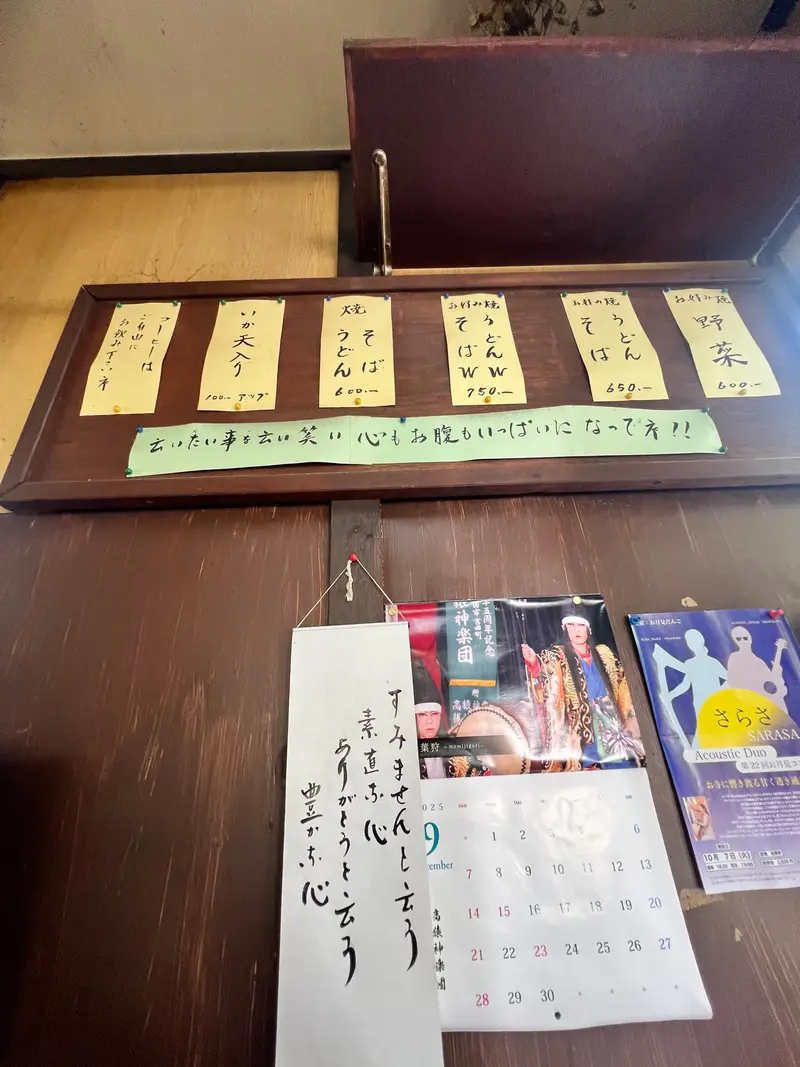 お好み焼
野菜
600.-
お好み焼
うどん
そば
650.-
お好み焼
うどんW
そばW
750.-
焼
そば
うどん
600.-
いか天入り
100.- アップ
コーヒーは
ご自由に
お飲み下さい
云いたい事を云い笑い心もお腹もいっぱいになって
すみませんと云う
素直な心
ありがとうと云う
豊かな心
十五周年記念
神楽団
葉狩 ～momijigari～
2025
9
SUN
SAT
1 2 6
7 8 9 10 11 12 13
14 15 16 17 18 19 20
21 22 23 24 25 26 27
28 29 30
神楽団
お月見だんご
さらさ
SARASA
Acoustic Duo
第22回お月見コ
お寺に響き渡る甘く透き通
10月 7日(火)